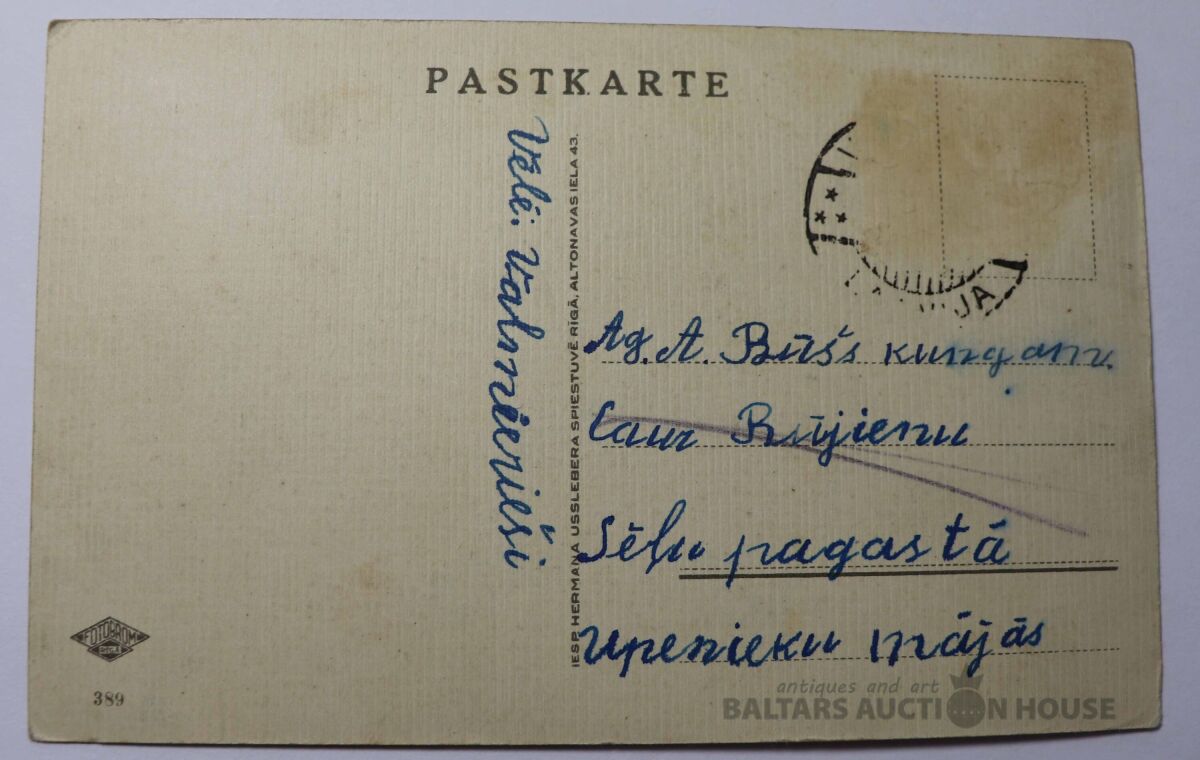 PASTKARTE
Vēlē: Valmierieši
IESP. HERMAŅA USSLEBERA SPIESTUVĒ RĪGĀ, ALTONAVAS IELA 43.
JA
Ag. A. Būšs kungam.
Caur Rūjienu
Sēļu pagastā
Upenieku mājās
FOTOBROM
RIGA
389
antiques and art
BALTARS AUCTION HOUSE